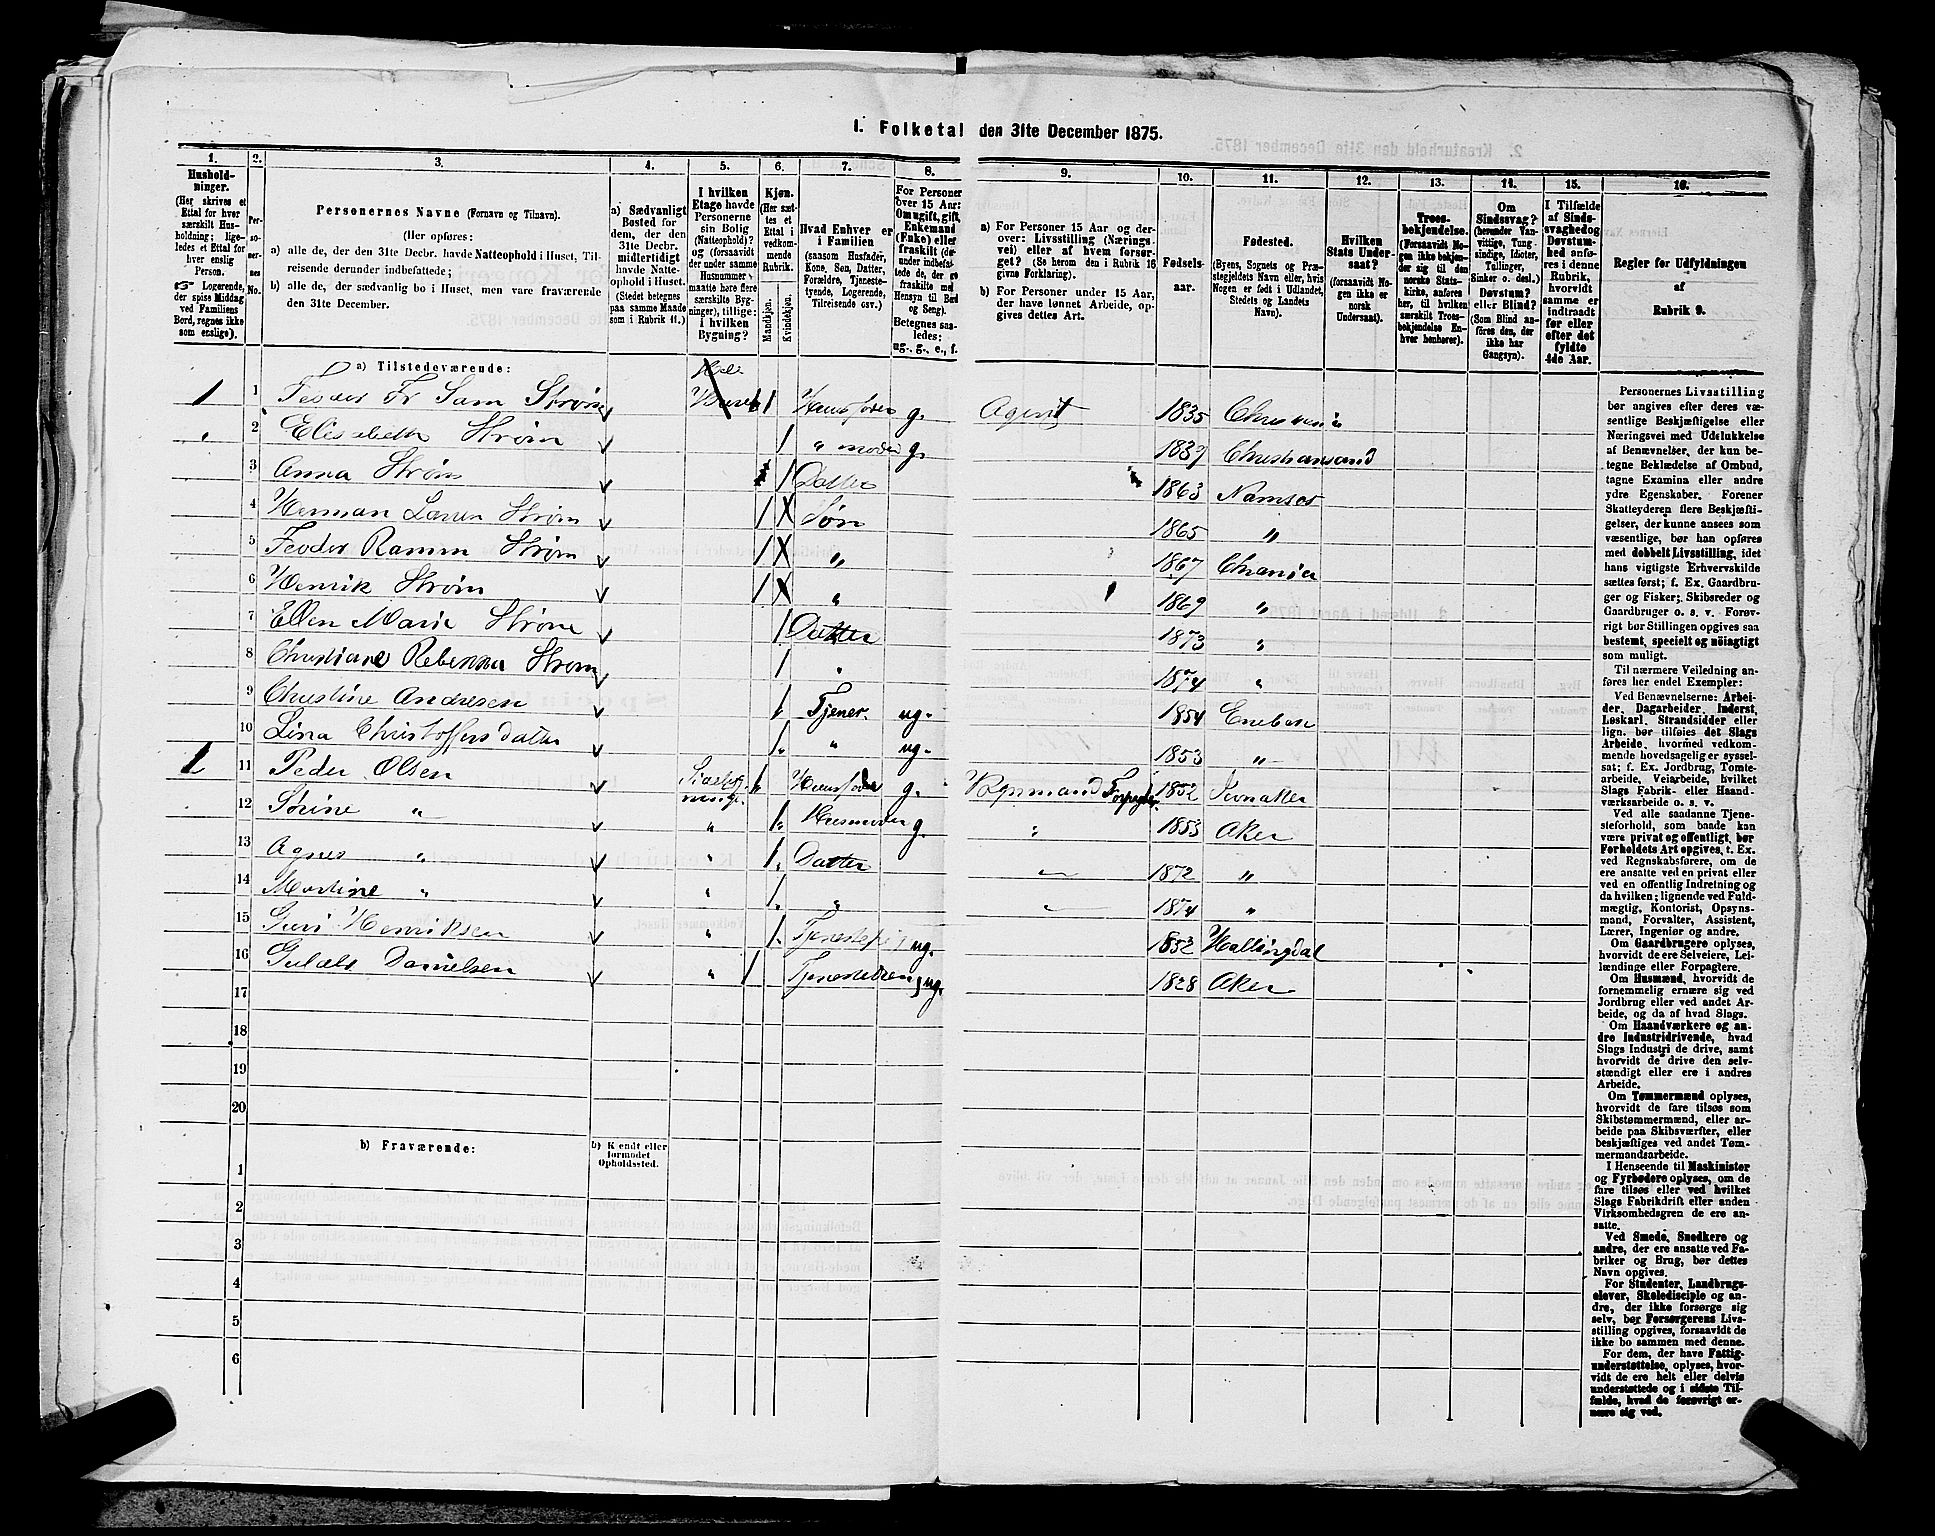 1. Folketal den 31te December 1875.
1. 2. 3. 4. 5. 6. 7. 8. 9. 10. 11. 12. 13. 14. 15. 16.
Hushold-
ninger.
(Her skrives et
Ettal for hver
særskilt Hus-
holdning; lige-
ledes et Ettal for
hver enslig
Person.
Logerende,
der spise Middag
ved Familiens
Bord, regnes ikke
som enslige).
Per-
so-
ner-
nes
No.
Personernes Navne (Fornavn og Tilnavn).
(Her opføres:
a) alle de, der den 31te Decbr. havde Natteophold i Huset, Til-
reisende derunder indbefattede;
b) alle de, der sædvanlig bo i Huset, men vare fraværende
den 31te December.
a) Sædvanligt
Bosted for
dem, der den
31te Decbr.
midlertidigt
havde Natte-
ophold i Huset.
(Stedet betegnes
paa samme Maade
som i Rubrik 11.)
I hvilken
Etage havde
Personerne
sin Bolig
(Natteophold)?
og (forsaavidt
der under samme
Husnummer
maatte høre flere
særskilte Byg-
ninger), tillige:
i hvilken
Bygning?
Kjøn.
(Her sæt-
tes et
Ettal i
vedkom-
mende
Rubrik.
Mandkjøn.
Kvindekjøn.
Hvad Enhver er
i Familien
(saasom Husfader,
Kone, Søn, Datter,
Forældre, Tjeneste-
tyende, Logerende,
Tilreisende osv.)
For Personer
over 15 Aar:
Om ugift, gift,
Enkemand
(Enke) eller
fraskilt
Betegnes saa-
ledes:
ug., g., e., f.
a) For Personer 15 Aar og der-
over: Livsstilling (Nærings-
vei) eller af hvem forsør-
get? (Se herom den i Rubrik 16
givne Forklaring).
b) For Personer under 15 Aar,
der have lønnet Arbeide, op-
gives dettes Art.
Fødsels-
aar.
Fødested.
(Byens, Sognets og Præ-
stegjeldets Navn eller, hvis
Nogen er født i Udlandet,
Stedets og Landets
Navn).
Hvilken
Stats Under-
saat?
(forsaavidt No-
gen ikke er
norsk
Undersaat).
Troes-
bekjendelse.
(Forsaavidt No-
gen ikke bekjen-
der sig til den
norske Stats-
kirke, anføres
her, til hvilken
særskilt Troes-
bekjendelse En-
hver henhører).
Om
Sindssvag?
(herunder Van-
vittige, Tung-
sindige, Idioter,
Tullinger,
Sinker o. desl.)
Døvstum?
eller Blind?
(Som Blind an-
føres den, der
ikke har
Gangsyn).
I Tilfælde
af Sinds-
svaghed og
Døvstum-
hed anfø-
res i denne
Rubrik,
hvorvidt
samme er
indtraadt
før eller
efter det
fyldte
4de Aar.
Regler for Udfyldningen
af
Rubrik 9.
a) Tilstedeværende:
1 1 Feodor Fr Sam Strøm Husfader g. Agent 1835 Christiania
2 Elisabeth Strøm " moder g. 1839 Christiansand
3 Anna Strøm Datter 1863 Namsos
4 Herman Strøm Søn 1865 "
5 Feodor Ramm Strøm " 1867 Chrania
6 Henrik Strøm " 1869 "
7 Ellen Marie Strøm Datter 1873 "
8 Christiane Rebekka Strøm " 1874 "
9 Christine Andresen Tjener ug. 1854 Enebak
10 Lina Christoffersdatter " ug. 1853 "
1 11 Peder Olsen Husfader g. Forpagter 1852 Jevnaker
12 Sørine " " Husmoder g. " 1853 Aker
13 Agnes " " Datter " 1872 "
14 Martine " " " " 1874 "
15 Guri Henriksen " Tjenestepig ug. 1852 Hallingdal
16 Danielsen " Tjenestedreng ug. 1828 Aker
17
18
19
20
b) Fraværende:
b) Kjendt eller
formodet
Opholdssted.
1
2
3
4
5
6
Personernes Livsstilling
bør angives efter deres væ-
sentlige Beskjæftigelse eller
Næringsvei med Udelukkelse
af Benævnelser, der kun be-
tegne Beklædelse af Ombud,
tagne Examina eller andre
ydre Egenskaber. Forener
Skatteyderen flere Beskjæfti-
gelser, der kunne ansees som
væsentlige, bør han opføres
med dobbelt Livsstilling, idet
hans vigtigste Erhvervskilde
sættes først; f. Ex. Gaardbru-
ger og Fisker; Skibsreder og
Gaardbruger o. s. v. Forøv-
rigt bør Stillingen opgives saa
bestemt, specielt og nøiagtigt
som muligt.
Til nærmere Veiledning an-
føres her endel Exempler:
Ved Benævnelserne: Arbei-
der, Dagarbeider, Inderst,
Løskarl, Strandsidder eller
lign. bør tilføies det Slags
Arbeide, hvormed vedkom-
mende hovedsagelig er syssel-
sat; f. Ex. Jordbrug, Tomte-
arbeide, Veiarbeide, hvilket
Slags Fabrik- eller Haand-
værksarbeide o. s. v.
Ved alle saadanne Tjene-
steforhold, som baade kan
være privat og offentligt, bør
Forholdets Art opgives, t. Ex.
ved Regnskabsførere, om de
ere ansatte ved en privat eller
ved en offentlig Indretning og
da hvilken; lignende ved Fuld-
mægtig, Kontorist, Opsyns-
mand, Forvalter, Assistent,
Lærer, Ingeniør og andre.
Om Gaardbrugere oplyses,
hvorvidt de ere Selveiere, Lei-
lændinge eller Forpagtere.
Om Husmænd, hvorvidt de
fornemmelig ernære sig ved
Jordbrug eller ved andet Ar-
beide, og da af hvad Slags.
Om Haandværkere og an-
dre Industridrivende, hvad
Slags Industri de drive, samt
hvorvidt de drive den selv-
stændigt eller ere i andres
Arbeide.
Om Tømmermænd oplyses,
hvorvidt de fare tilsøs som
Skibstømmermænd, eller ar-
beide paa Skibsværfter, eller
beskjæftiges ved andet Tøm-
mermandsarbeide.
I Henseende til Maskinister
og Fyrbødere oplyses, om de
fare tilsøs eller ved hvilket
Slags Fabrikdrift eller anden
Virksomhedsgren de ere an-
satte.
Ved Smede, Snedkere og
andre, der ere ansatte ved Fa-
briker og Brug, bør dettes
Navn opgives.
For Studenter, Landbrugs-
elever, Skoledisciple og an-
dre, der ikke forsørge sig
selv, bør Forsørgerens Livs-
stilling opgives, forsaavidt de
ikke bo sammen med denne.
For dem, der have Fattig-
understøttelse, oplyses, hvor-
vidt de ere helt eller delvis
understøttede og i sidste Til-
fælde, hvad de forøvrigt er-
nære sig ved.